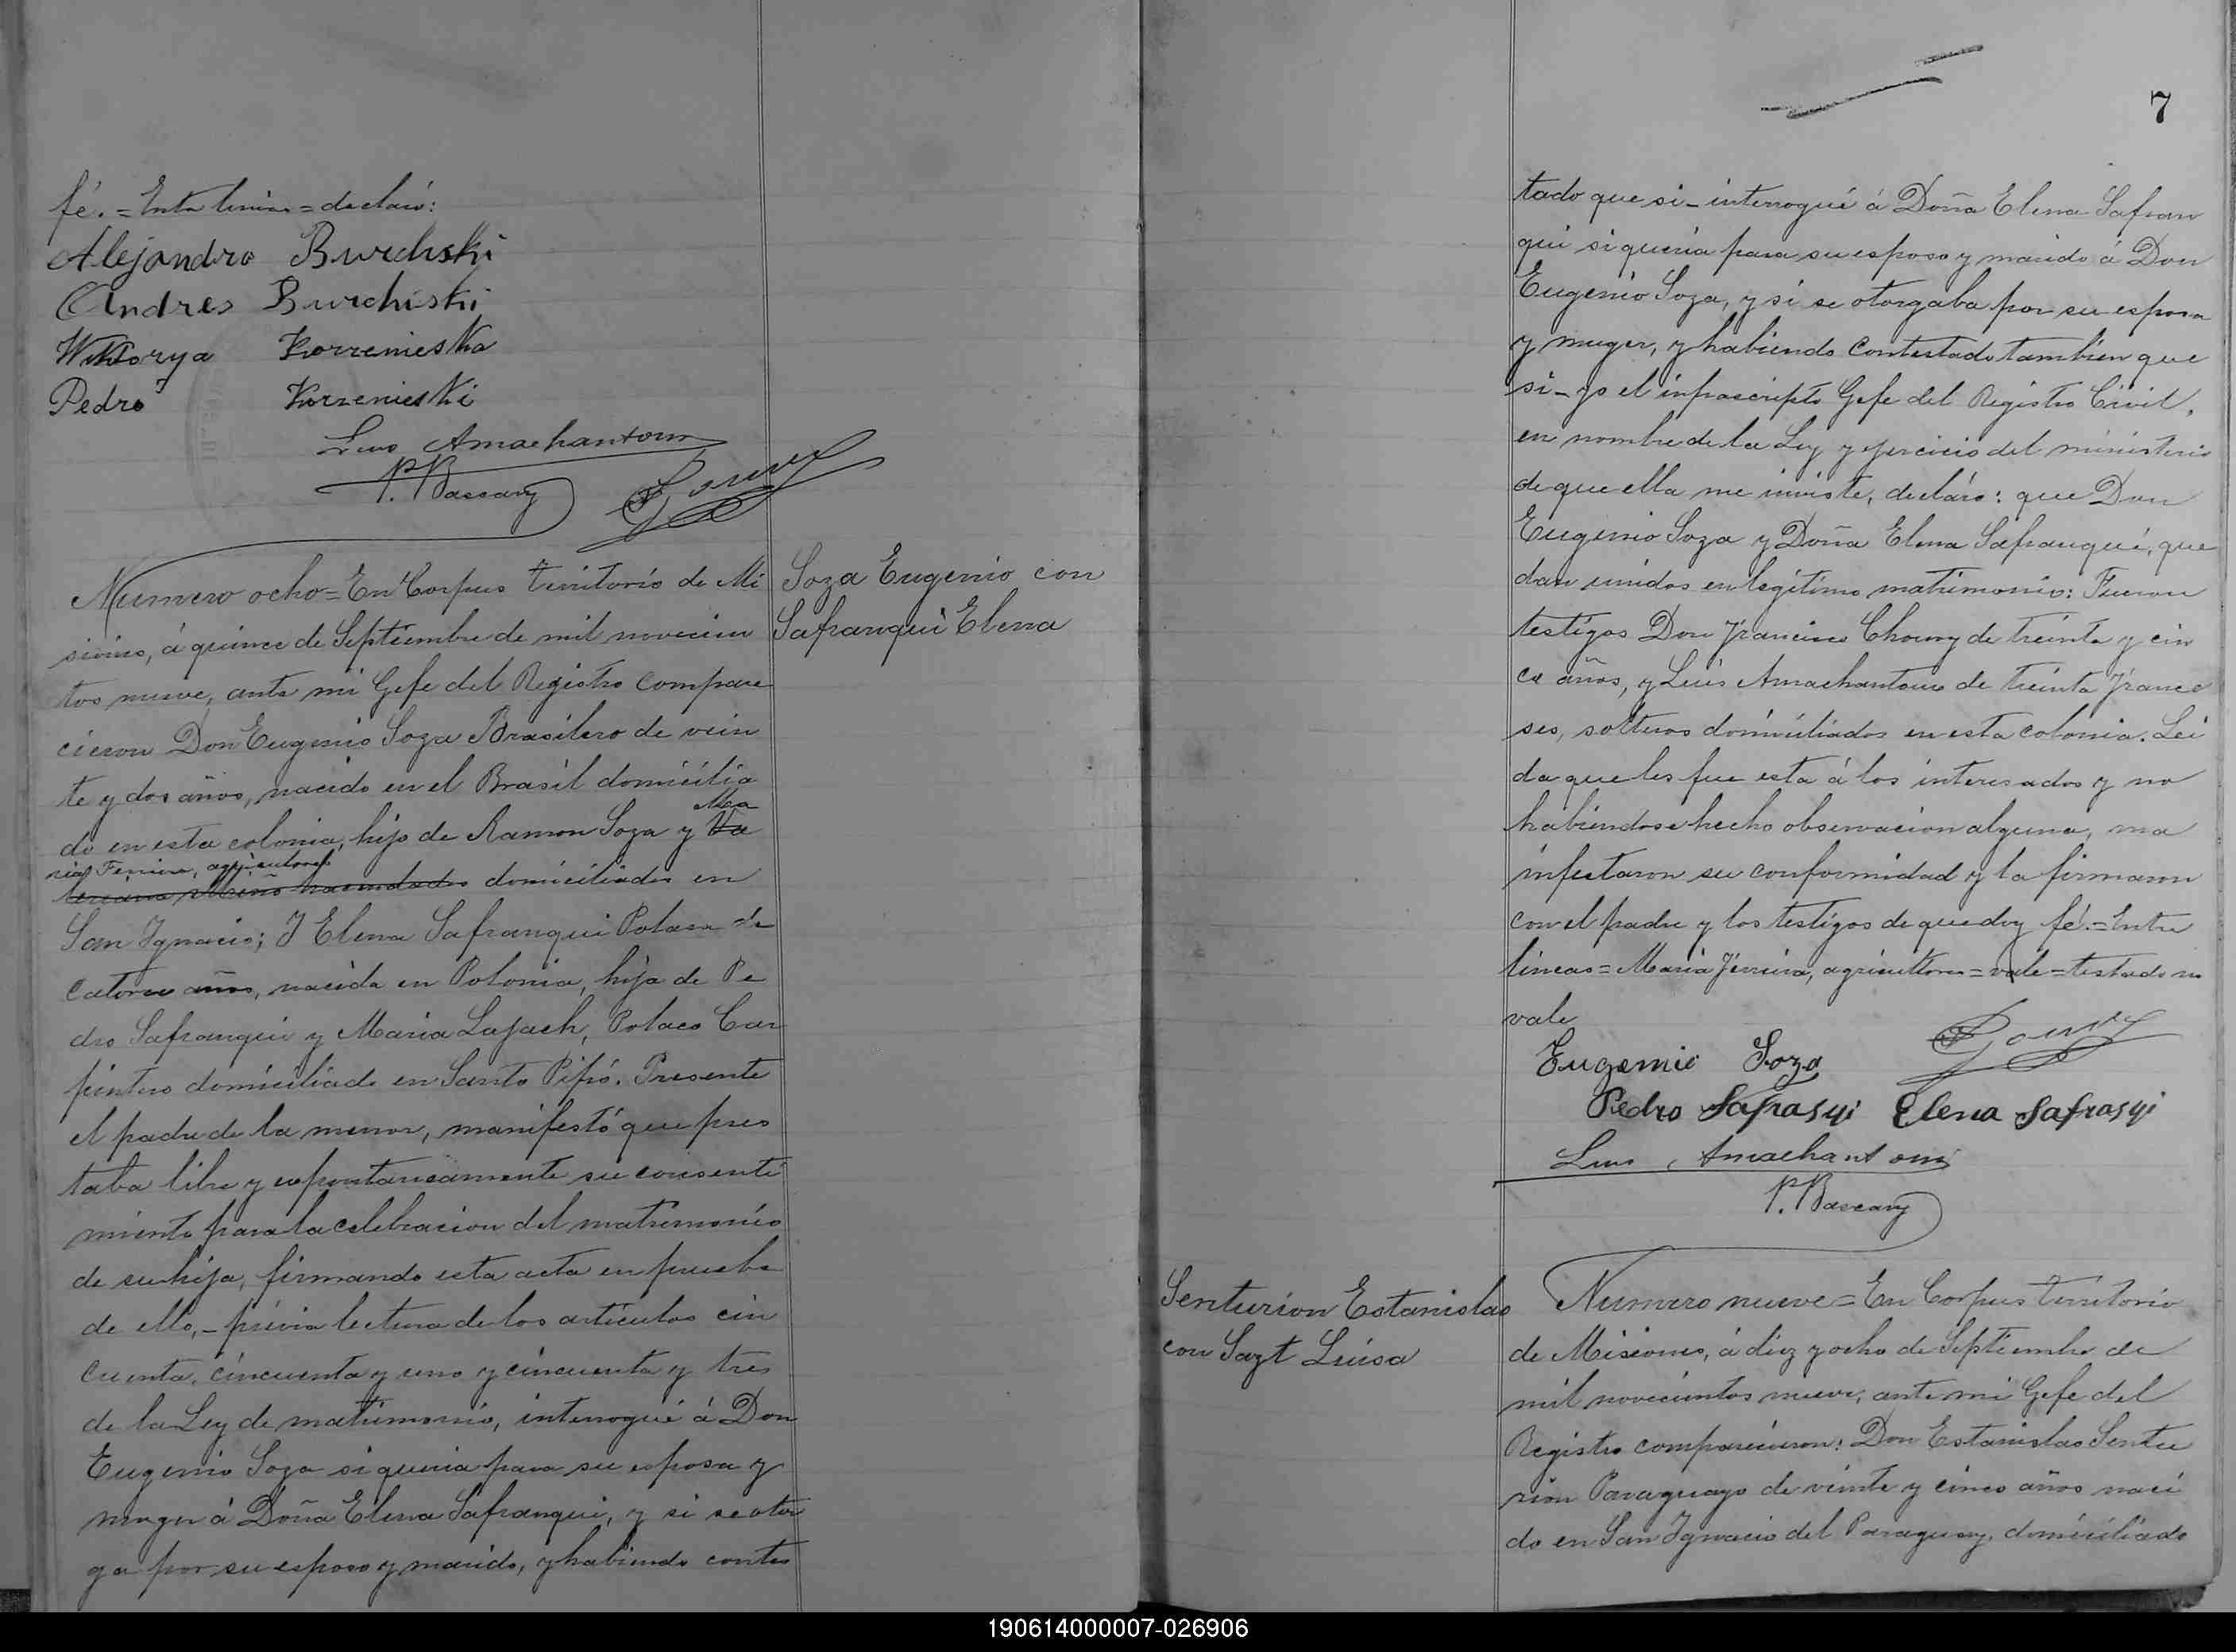 fé. = Entre lineas = declaró:
Alejandro Burchski
Andres Burchiski
Wiktorya Korzenieska
Pedro Korzenieski
Luis Amachantoux
P. Bascary
Numero ocho = En Corpus territorio de Mi
siones, á quince de Septiembre de mil novecien
tos nueve, ante mi Gefe del Registro compare
cieron Don Eugenio Soza Brasilero de vein
te y dos años, nacido en el Brasil domicilia
do en esta colonia, hijo de Ramon Soza y Ma
ria Ferreira, agricultores domiciliados en
San Ignacio; I Elena Safranqui Polaca de
catorce años, nacida en Polonia, hija de Pe
dro Safranqui y Maria Lajach, Polaco Car
pintero domiciliado en Santo Pipó. Presente
el padre de la menor, manifestó que pres
taba libre y espontaneamente su consenti
miento para la celebracion del matrimonio
de su hija, firmando esta acta en prueba
de ello, - prévia lectura de los artículos cin
cuenta, cincuenta y uno y cincuenta y tres
de la Ley de matrimonio, interrogué á Don
Eugenio Soza si queria para su esposa y
muger á Doña Elena Safranqui, y si se otor
ga por su esposo y marido, y habiendo contes
Soza Eugenio con
Safranqui Elena
7
tado que si - interrogué á Doña Elena Safran
qui si queria para su esposo y marido á Don
Eugenio Soza, y si se otorgaba por su esposa
y muger, y habiendo contestado tambien que
si - yo el infrascripto Gefe del Registro Civil,
en nombre de la Ley y ejercicio del ministerio
de que ella me inviste, decláro: que Don
Eugenio Soza y Doña Elena Safranqui, que
dan unidos en legítimo matrimonio: Fueron
testigos Don Francisco Chouvy de treinta y cin
co años, y Luis Amachantoux de treinta France
ses, solteros domiciliados en esta colonia. Lei
da que les fue esta á los interesados y no
habiendose hecho observacion alguna, ma
nifestaron su conformidad y la firmaron
con el padre y los testigos de que doy fé. = Entre
lineas = Maria Ferreira, agricultores = vale = testado no
vale
Eugenio Soza
Pedro Safrasqi Elena Safrasqi
Luis Amachantoux
P. Bascary
Senturion Estanislao
con Sazt Luisa
Numero nueve = En Corpus territorio
de Misiones, á diez y ocho de Septiembre de
mil novecientos nueve, ante mi Gefe del
Registro comparecieron: Don Estanislao Sentu
rion Paraguayo de veinte y cinco años naci
do en San Ignacio del Paraguay, domiciliado
190614000007-026906